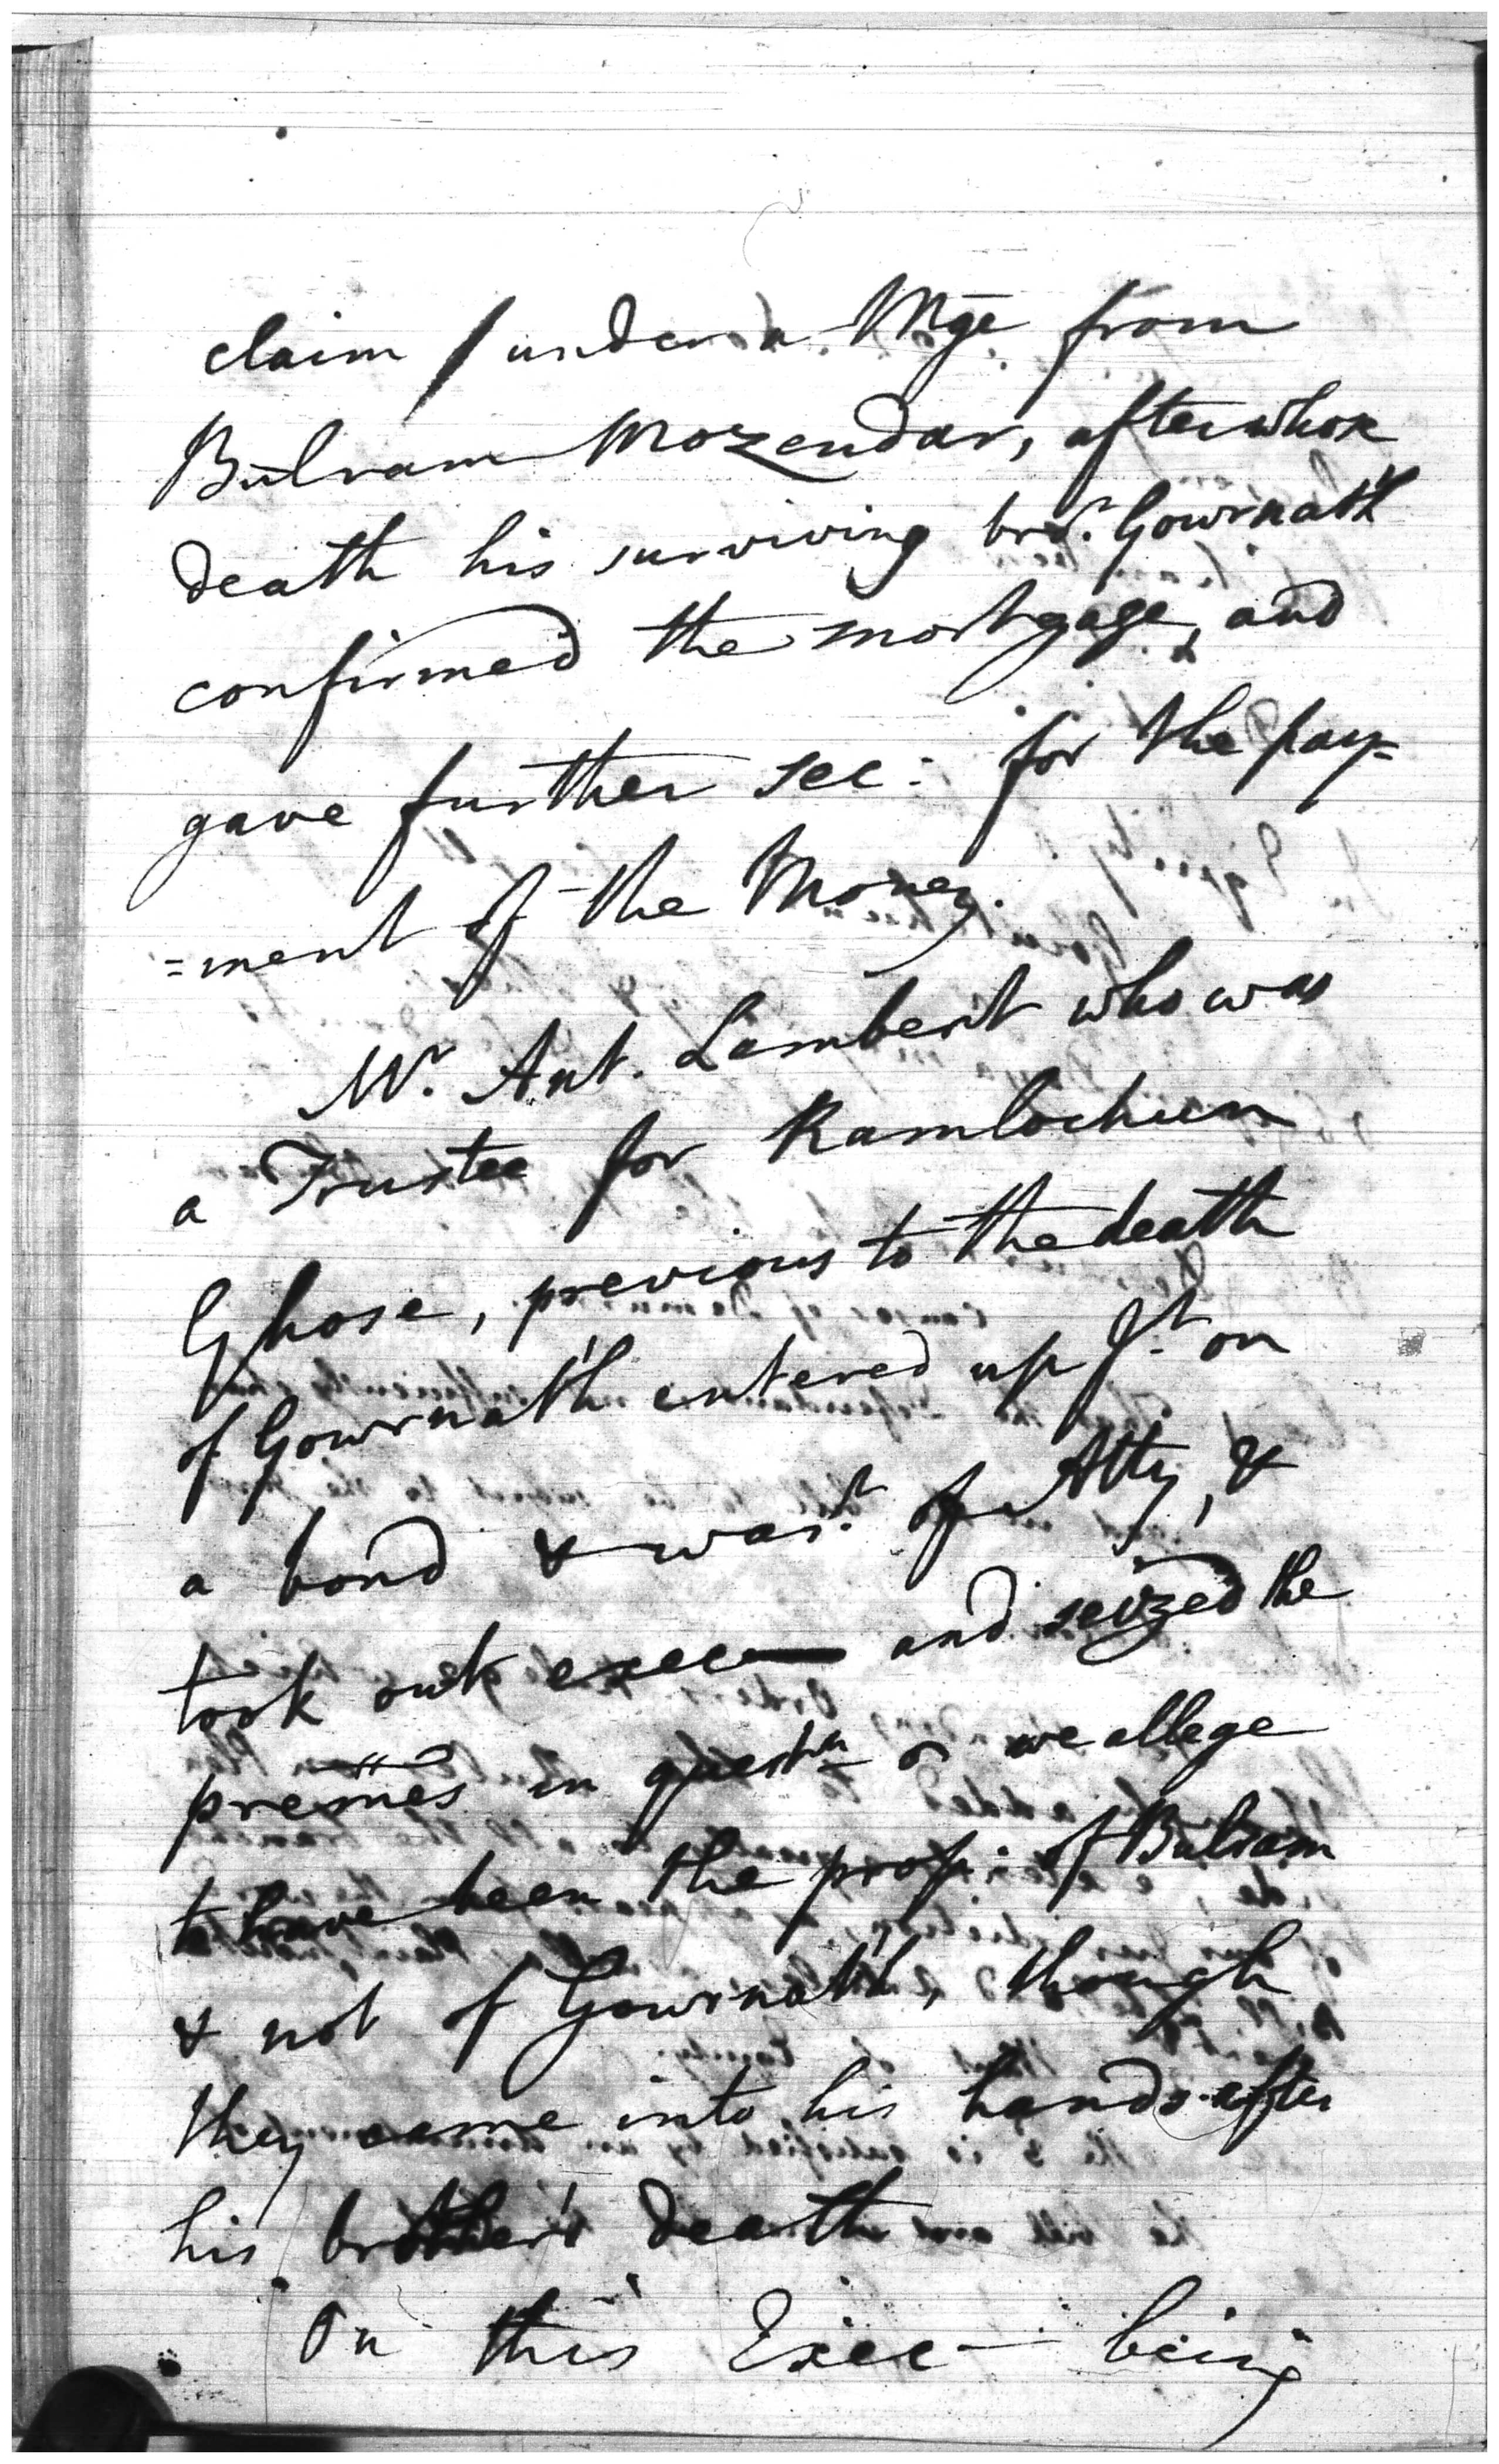 claim / under a Mge from
Bulram Mozendar, after whose
death his surviving bror. Gowrnath
confirmed the mortgage, and
gave further sec: for the pay=
=ment of the Money.
Mr. Ant. Lambert who was
a Trustee for Ramlochun
Ghose, previous to the death
of Gowrnath entered up Jt. on
a bond & wart. of Atty, &
took out exec— and seized the
premes in questn as we allege
to have been the prop: of Bulram
& not of Gowrnath, though
they came into his hands after
his brother's death
On this Exec— being